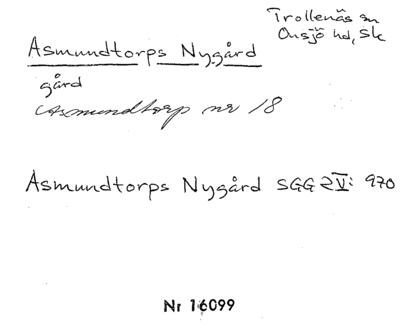 Trollenäs sn
Onsjö hd, Sk
Asmundtorps Nygård
gård
Asmundtorp nr 18
Asmundtorps Nygård SGG 2V: 970
Nr 16099